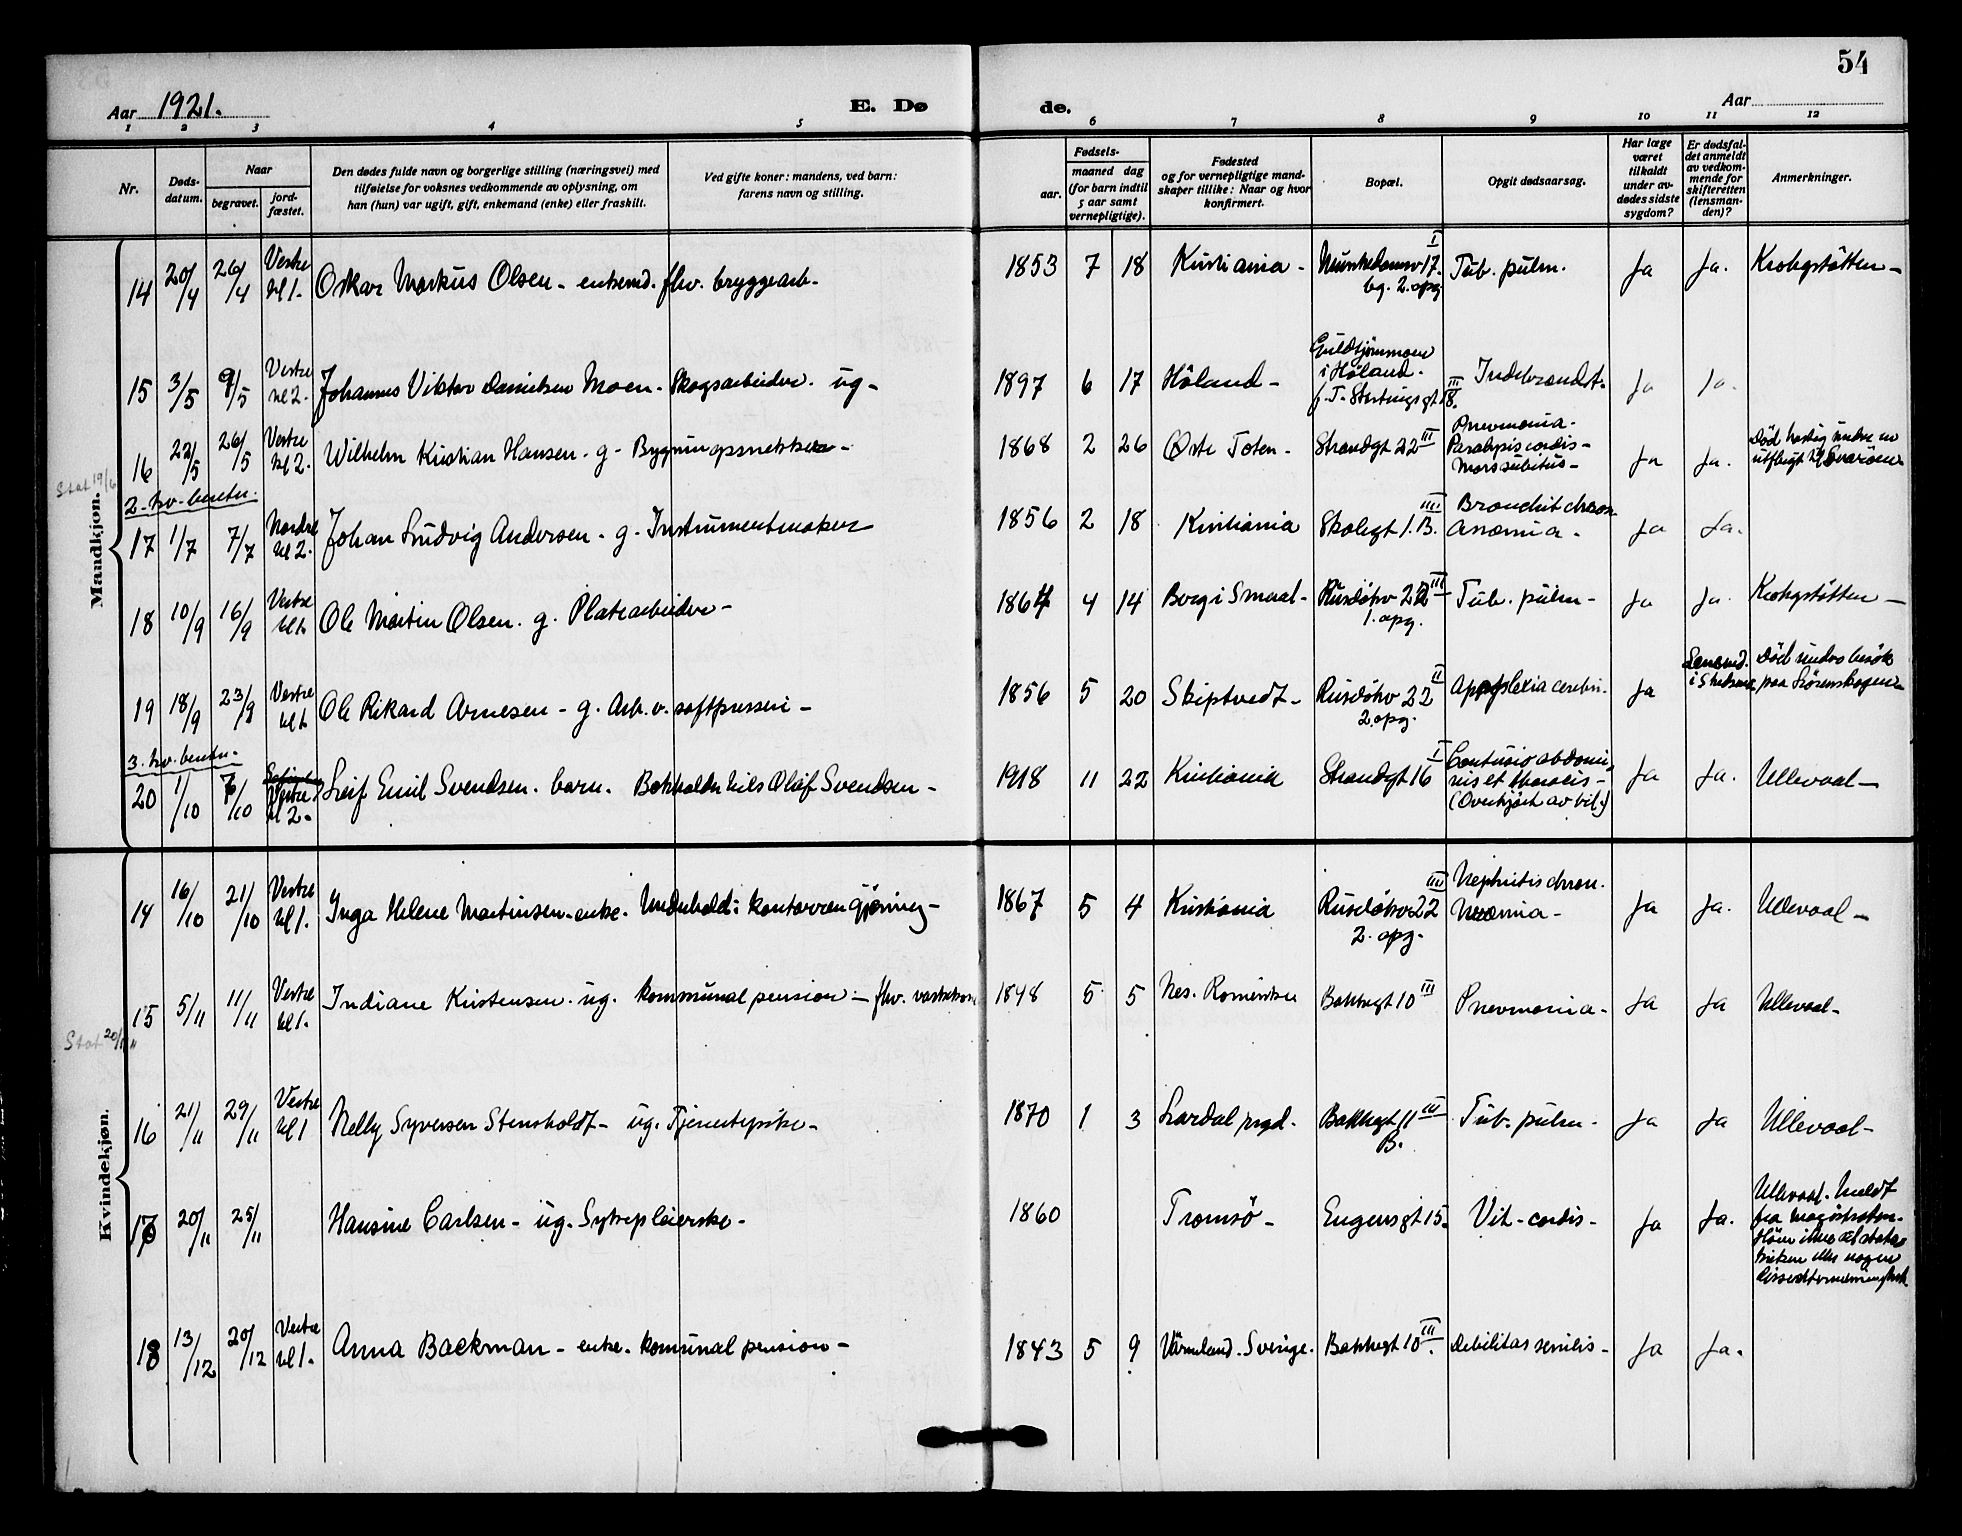 54
Aar 1921.
E. Dø
de.
Aar
1 2 3 4 5 6 7 8 9 10 11 12
Nr.
Døds-
datum.
Naar
begravet.
jord-
fæstet.
Den dødes fulde navn og borgerlige stilling (næringsvei) med
tilføielse for voksnes vedkommende av oplysning, om
han (hun) var ugift, gift, enkemand (enke) eller fraskilt.
Ved gifte koner: mandens, ved barn:
farens navn og stilling.
Fødsels-
aar.
maaned dag
(for barn indtil
5 aar samt
vernepligtige).
Fødested
og for vernepligtige mand-
skaper tillike: Naar og hvor
konfirmert.
Bopæl.
Opgit dødsaarsag.
Har læge
været
tilkaldt
under av-
dødes sidste
sygdom?
Er dødsfal-
det anmeldt
av vedkom-
mende for
skifteretten
(lensman-
den)?
Anmerkninger.
Mandkjøn.
14 20/4 26/4 Vestre kl 1. Oskar Markus Olsen - enkemd. fhv. bryggearb. 1853 7 18 Kristiania - Munkedamsv 17 I
bg. 2. opg Tub. pulm. Ja Ja. Krohgstøtten -
15 3/5 9/5 Vestre kl 2. Johannes Viktor Danielsen Moen. Skogsarbeider. ug - 1897 6 17 Höland -
i Höland. Ja Ja.
16 22/5 26/5 Vestre kl 2. Wilhelm Kristian Hansen. g. Bygningssnekker - 1868 2 26 Østre Toten - Strandgt 22 III Pneumonia.
Paralysis cordis -
Mors subitus - Ja Ja.
Stat 19/6
2. kv. bentu.
17 1/7 7/7 Nordre kl 2. Johan Ludvig Andersen. g. Instrumentmaker 1856 2 18 Kristiania Skolegt 1. B. III Bronchit chron.
Anæmia. Ja Ja.
18 10/9 16/9 Vestre kl 1. Ole Martin Olsen. g. Platearbeider - 1864 4 14 Berg i Smaal - Ruseløkv 22 III
1. opg. Tub. pulm - Ja Ja. Krohgstøtten -
19 18/9 23/9 Vestre kl 1. Ole Rikard Arnesen - g. Arb. v. saftpresseri - 1856 5 20 Skiptvedt - Ruseløkv 22 II
2. opg. Apoplexia cerebri. Ja Lensmd.
Død under besøk
3. kv. bentu.
20 1/10 7/10 Vestre kl 2. Leif Emil Svendsen. barn. Bokholder Nils Olaf Svendsen - 1918 11 22 Kristiania Strandgt 16 I Contusio abdomi-
nis et thoracis -
(Overkjørt av bil.) Ja Ja. Ullevaal -
Kvindekjøn.
14 16/10 21/10 Vestre kl 1. Inga Helene Martinsen - enke. Underhold: kontorrengjøring - 1867 5 4 Kristiania Ruseløkv 22 III
2. opg. Nephritis chron.
Ja Ja. Ullevaal -
15 5/11 11/11 Vestre kl 1. Indiane Kristensen. ug. kommunal pension - fhv. vaskekone 1848 5 5 Nes. Romerike Bakkegt 10 III Pnevmonia - Ja Ja Ullevaal -
Stat 20/11
16 21/11 29/11 Vestre kl 1 Nelly Syversen Stensholdt - ug. Tjenestepike - 1870 1 3 Lardal prgd. Bakkegt 11 III
B. Tub. pulm - Ja Ja Ullevaal -
17 20/11 25/11 Hansine Carlsen - ug. Sykepleierske - 1860 Tromsö - Eugensgt 15. Vit. cordis - Ja Ja. Ullevaal. Meldt
fra magistraten.
18 13/12 20/12 Vestre kl 1. Anna Backman - enke. komunal pension - 1843 5 9 Värmland. Sverige. Bakkegt 10 III. debilitas senilis - Ja Ja.